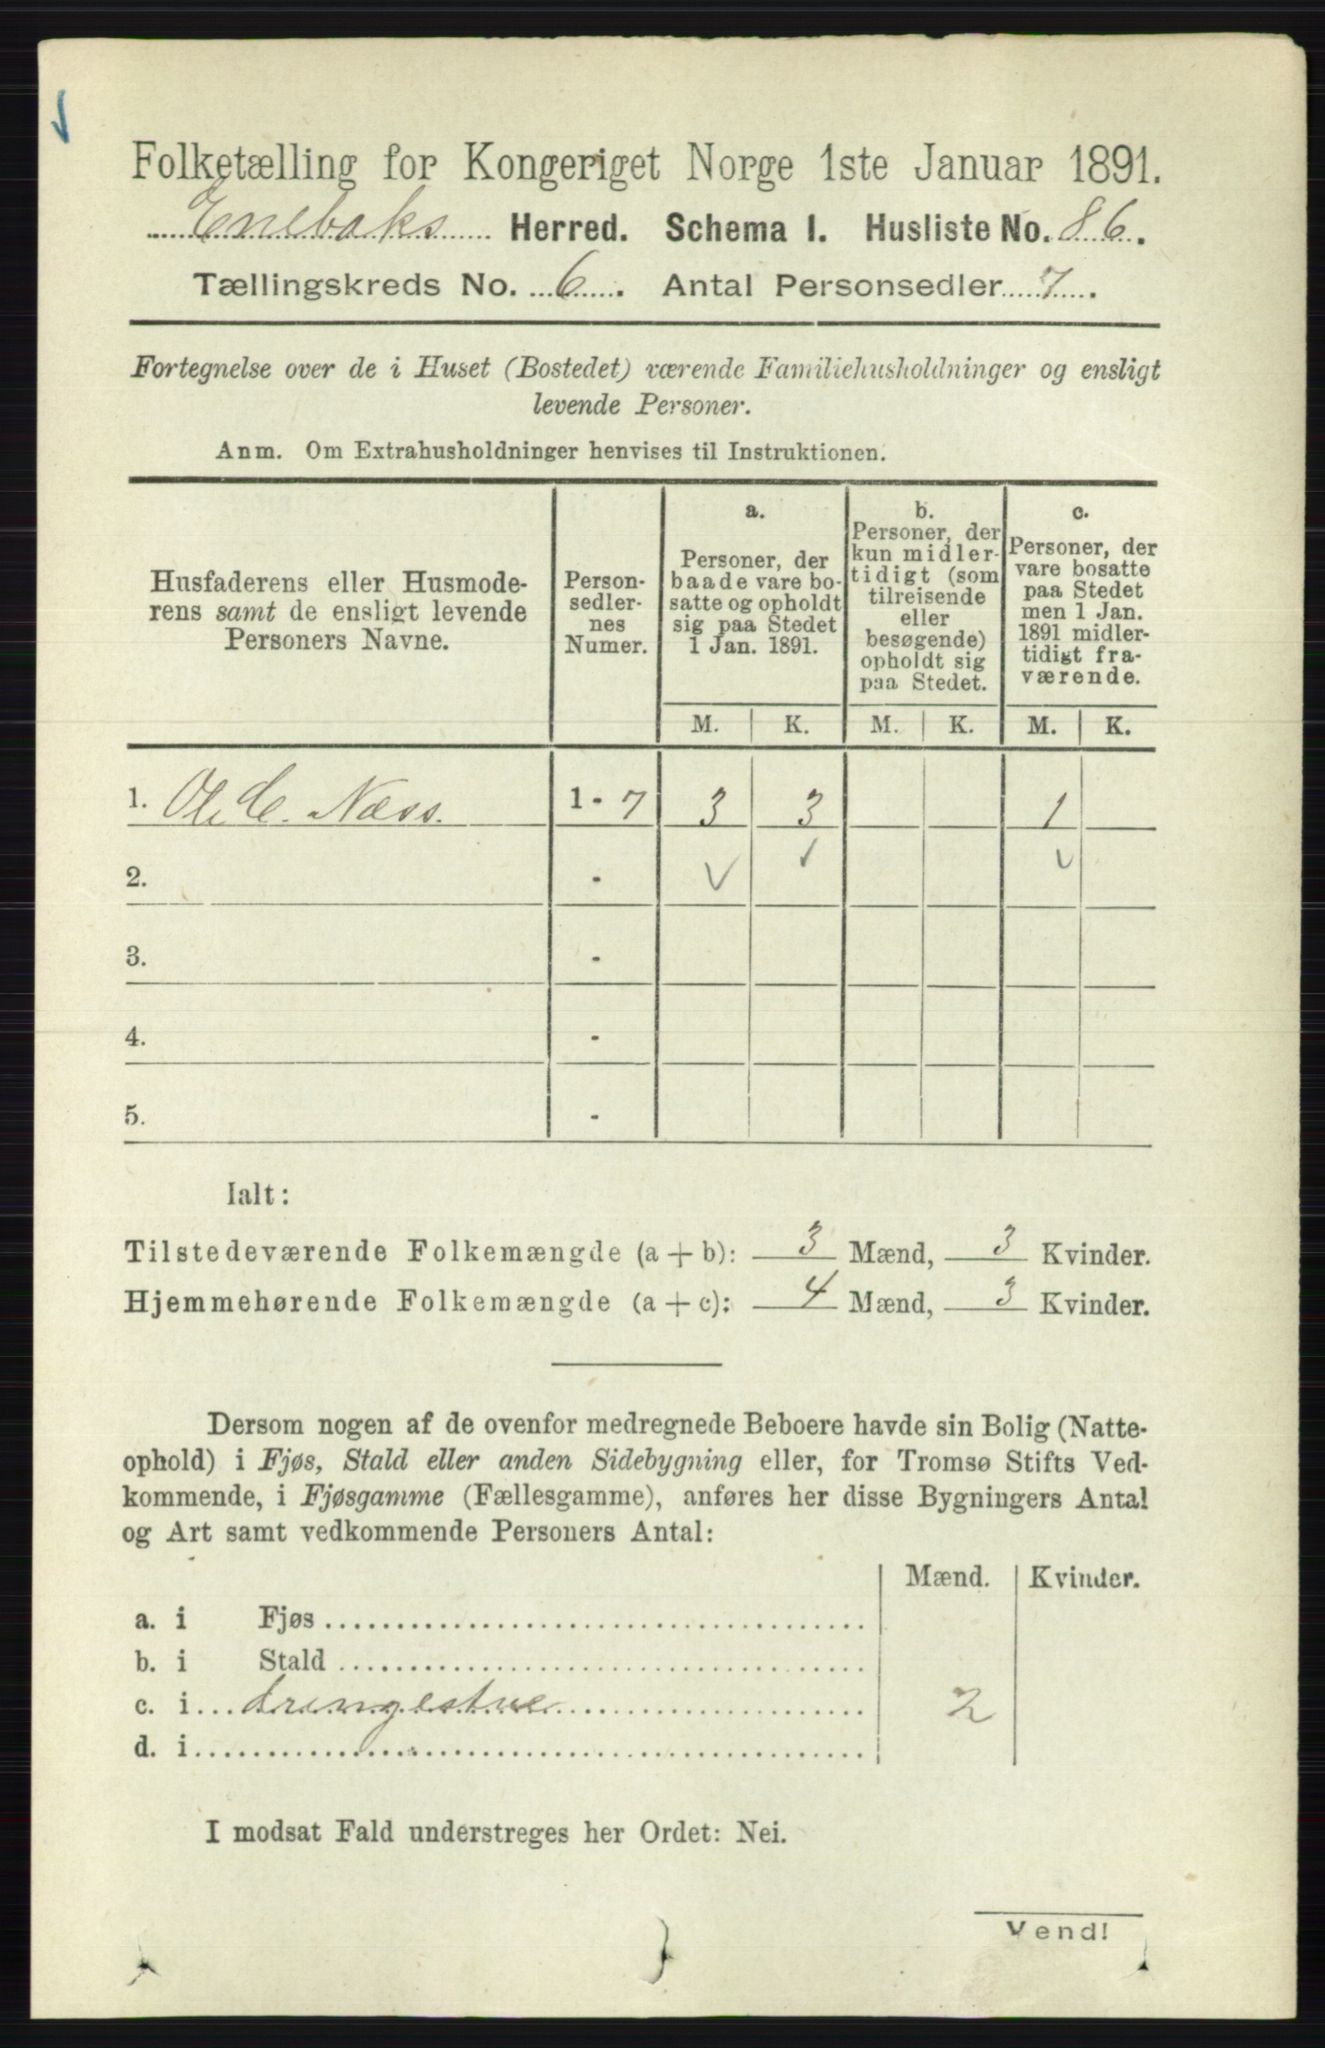 Folketælling for Kongeriget Norge 1ste Januar 1891.
Enebaks Herred. Schema I. Husliste No. 86.
Tællingskreds No. 6. Antal Personsedler 7.
Fortegnelse over de i Huset (Bostedet) værende Familiehusholdninger og ensligt
levende Personer.
Anm. Om Extrahusholdninger henvises til Instruktionen.
Husfaderens eller Husmode-
rens samt de ensligt levende
Personers Navne.
Person-
sedler-
nes
Numer.
a.
Personer, der
baade vare bo-
satte og opholdt
sig paa Stedet
1 Jan. 1891.
b.
Personer, der
kun midler-
tidigt (som
tilreisende
eller
besøgende)
opholdt sig
paa Stedet.
c.
Personer, der
vare bosatte
paa Stedet
men 1 Jan.
1891 midler-
tidigt fra-
værende.
M. K. M. K. M. K.
1. Ole C. Næss. 1 - 7 3 3 1
2. -
3. -
4. -
5. -
Ialt:
Tilstedeværende Folkemængde (a + b): 3 Mænd, 3 Kvinder.
Hjemmehørende Folkemængde (a + c): 4 Mænd, 3 Kvinder.
Dersom nogen af de ovenfor medregnede Beboere havde sin Bolig (Natte-
ophold) i Fjøs, Stald eller anden Sidebygning eller, for Tromsø Stifts Ved-
kommende, i Fjøsgamme (Fællesgamme), anføres her disse Bygningers Antal
og Art samt vedkommende Personers Antal:
Mænd. Kvinder.
a. i Fjøs
b. i Stald
c. i drengestue 2
d. i
I modsat Fald understreges her Ordet: Nei.
Vend!